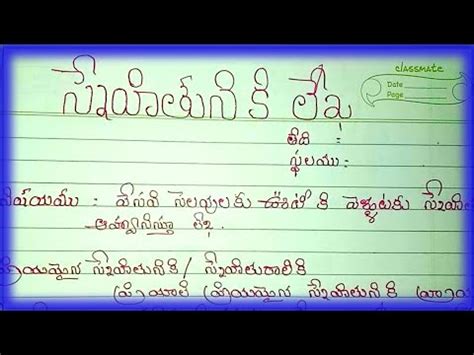 classmate
Date
Page
స్నేహితునికి లేఖ
తేది :
స్థలము :
విషయము : వేసవి సెలవులకు ఊటీ కి వెళ్ళుటకు
ఆహ్వానిస్తూ లేఖ.
ప్రియమైన స్నేహితునికి / స్నేహితురాలికి
ప్రియమైన స్నేహితునికి